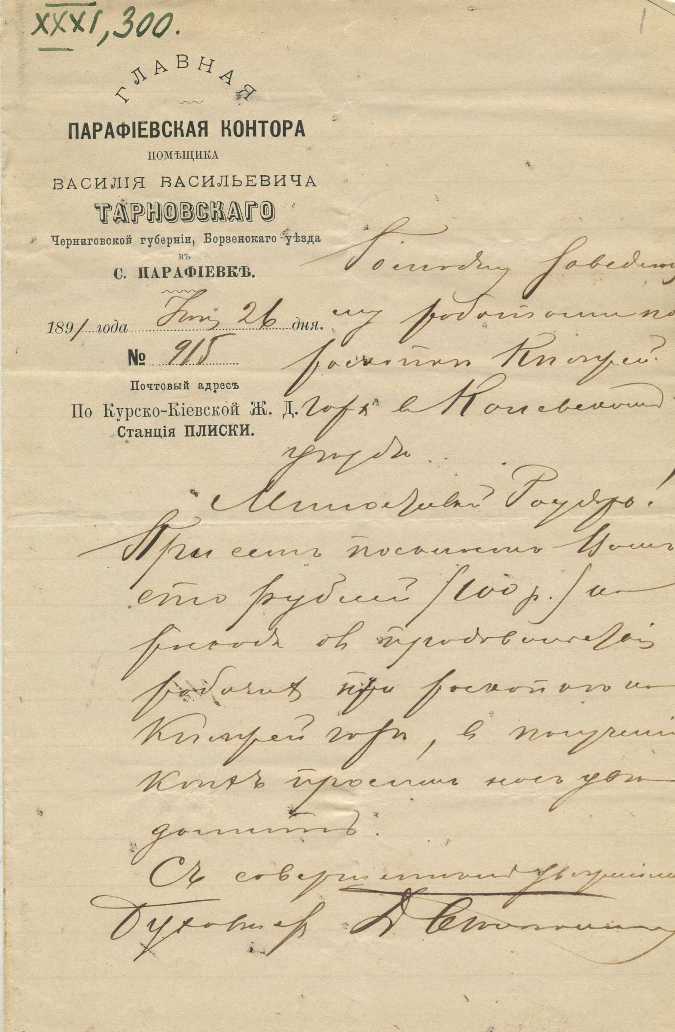 XXXI, 300.
1
ГЛАВНАЯ
ПАРАФІЕВСКАЯ КОНТОРА
ПОМѢЩИКА
ВАСИЛІЯ ВАСИЛЬЕВИЧА
ТАРНОВСКАГО
Черниговской губерніи, Борзенскаго уѣзда
въ
С. ПАРАФІЕВКѢ.
1891 года 26 дня.
№ 915
Почтовый адресъ
По Курско-Кіевской Ж. Д.
Станція ПЛИСКИ.
Господину Заведую
му работами по
раскопки Княжей
горѣ в Каневскомъ
уездѣ.
Милостивый Государь!
При семъ посылаемъ Вамъ
сто рублей (100 р.) на
расходъ
рабочихъ при на
Княжей горѣ, в получении
коихъ просимъ насъ уве
домить.
Съ совершеннымъ
Бухгалтер